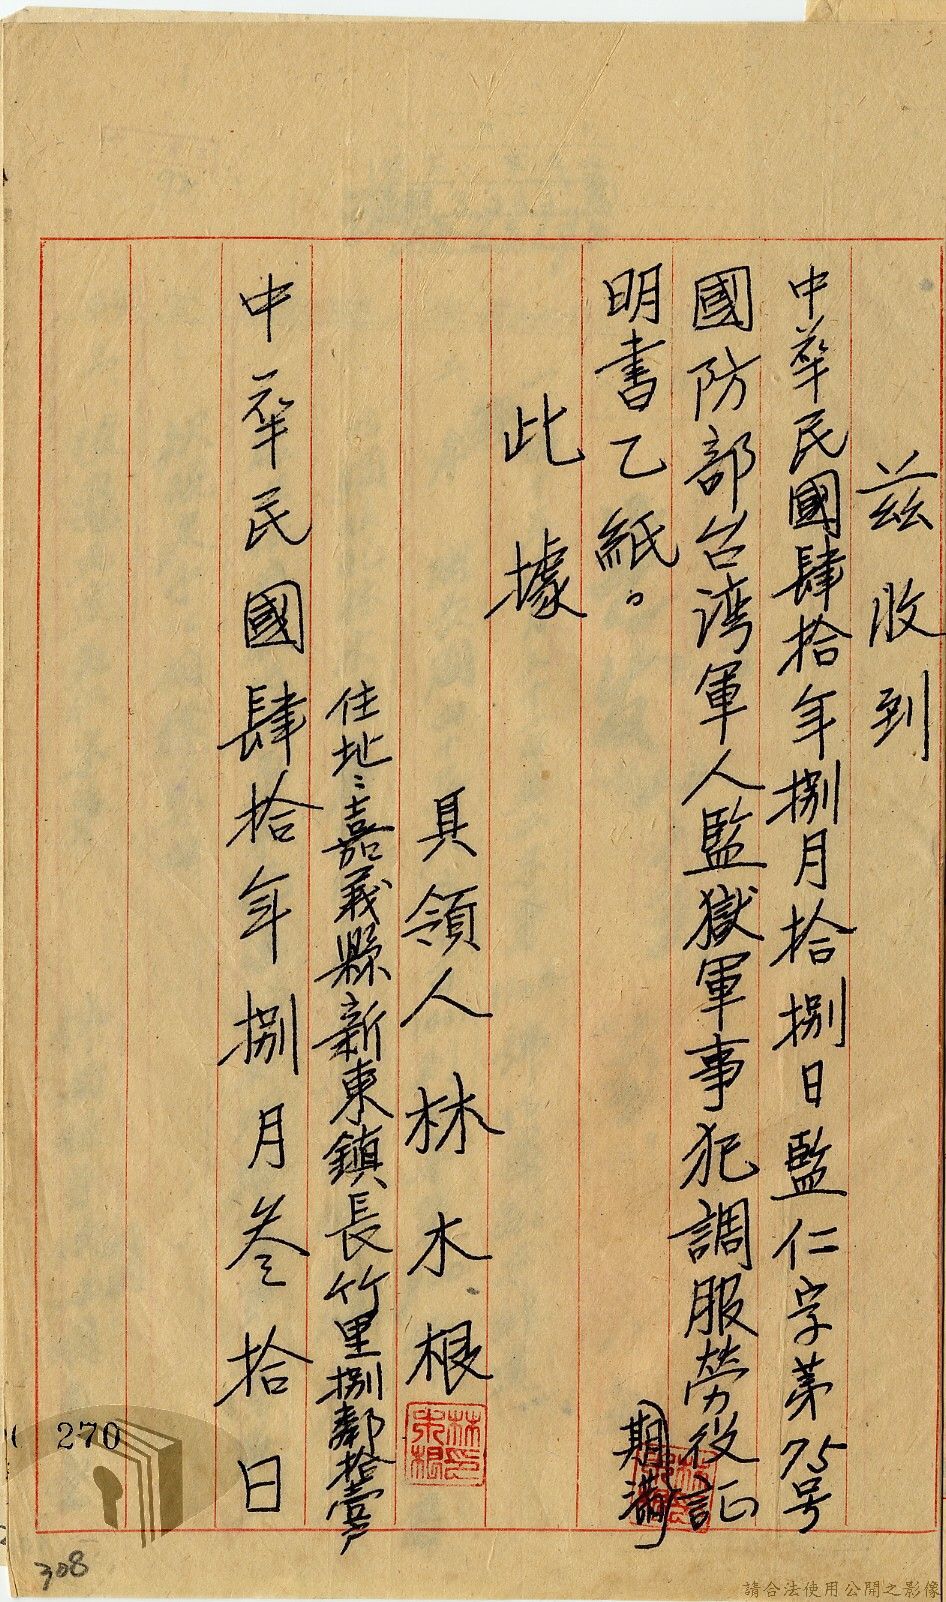 茲收到
中華民國肆拾年捌月拾捌日監仁字第75号
國防部台湾軍人監獄軍事犯調服勞役証
期滿
明書乙紙。
此據
具領人林木根
住址:嘉義縣新東鎮長竹里捌鄰拾壹戶
中華民國肆拾年捌月叁拾日
林木根印
270
308
請合法使用公開之影像